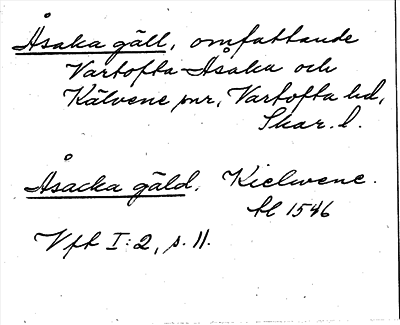 Åsaka gäll, omfattande
Vartofta-Åsaka och
Kälvene snr, Vartofta hd,
Skar. l.
Åsacka gäld. Kielwene.
hl 1546
Vft I:2, s. 11.